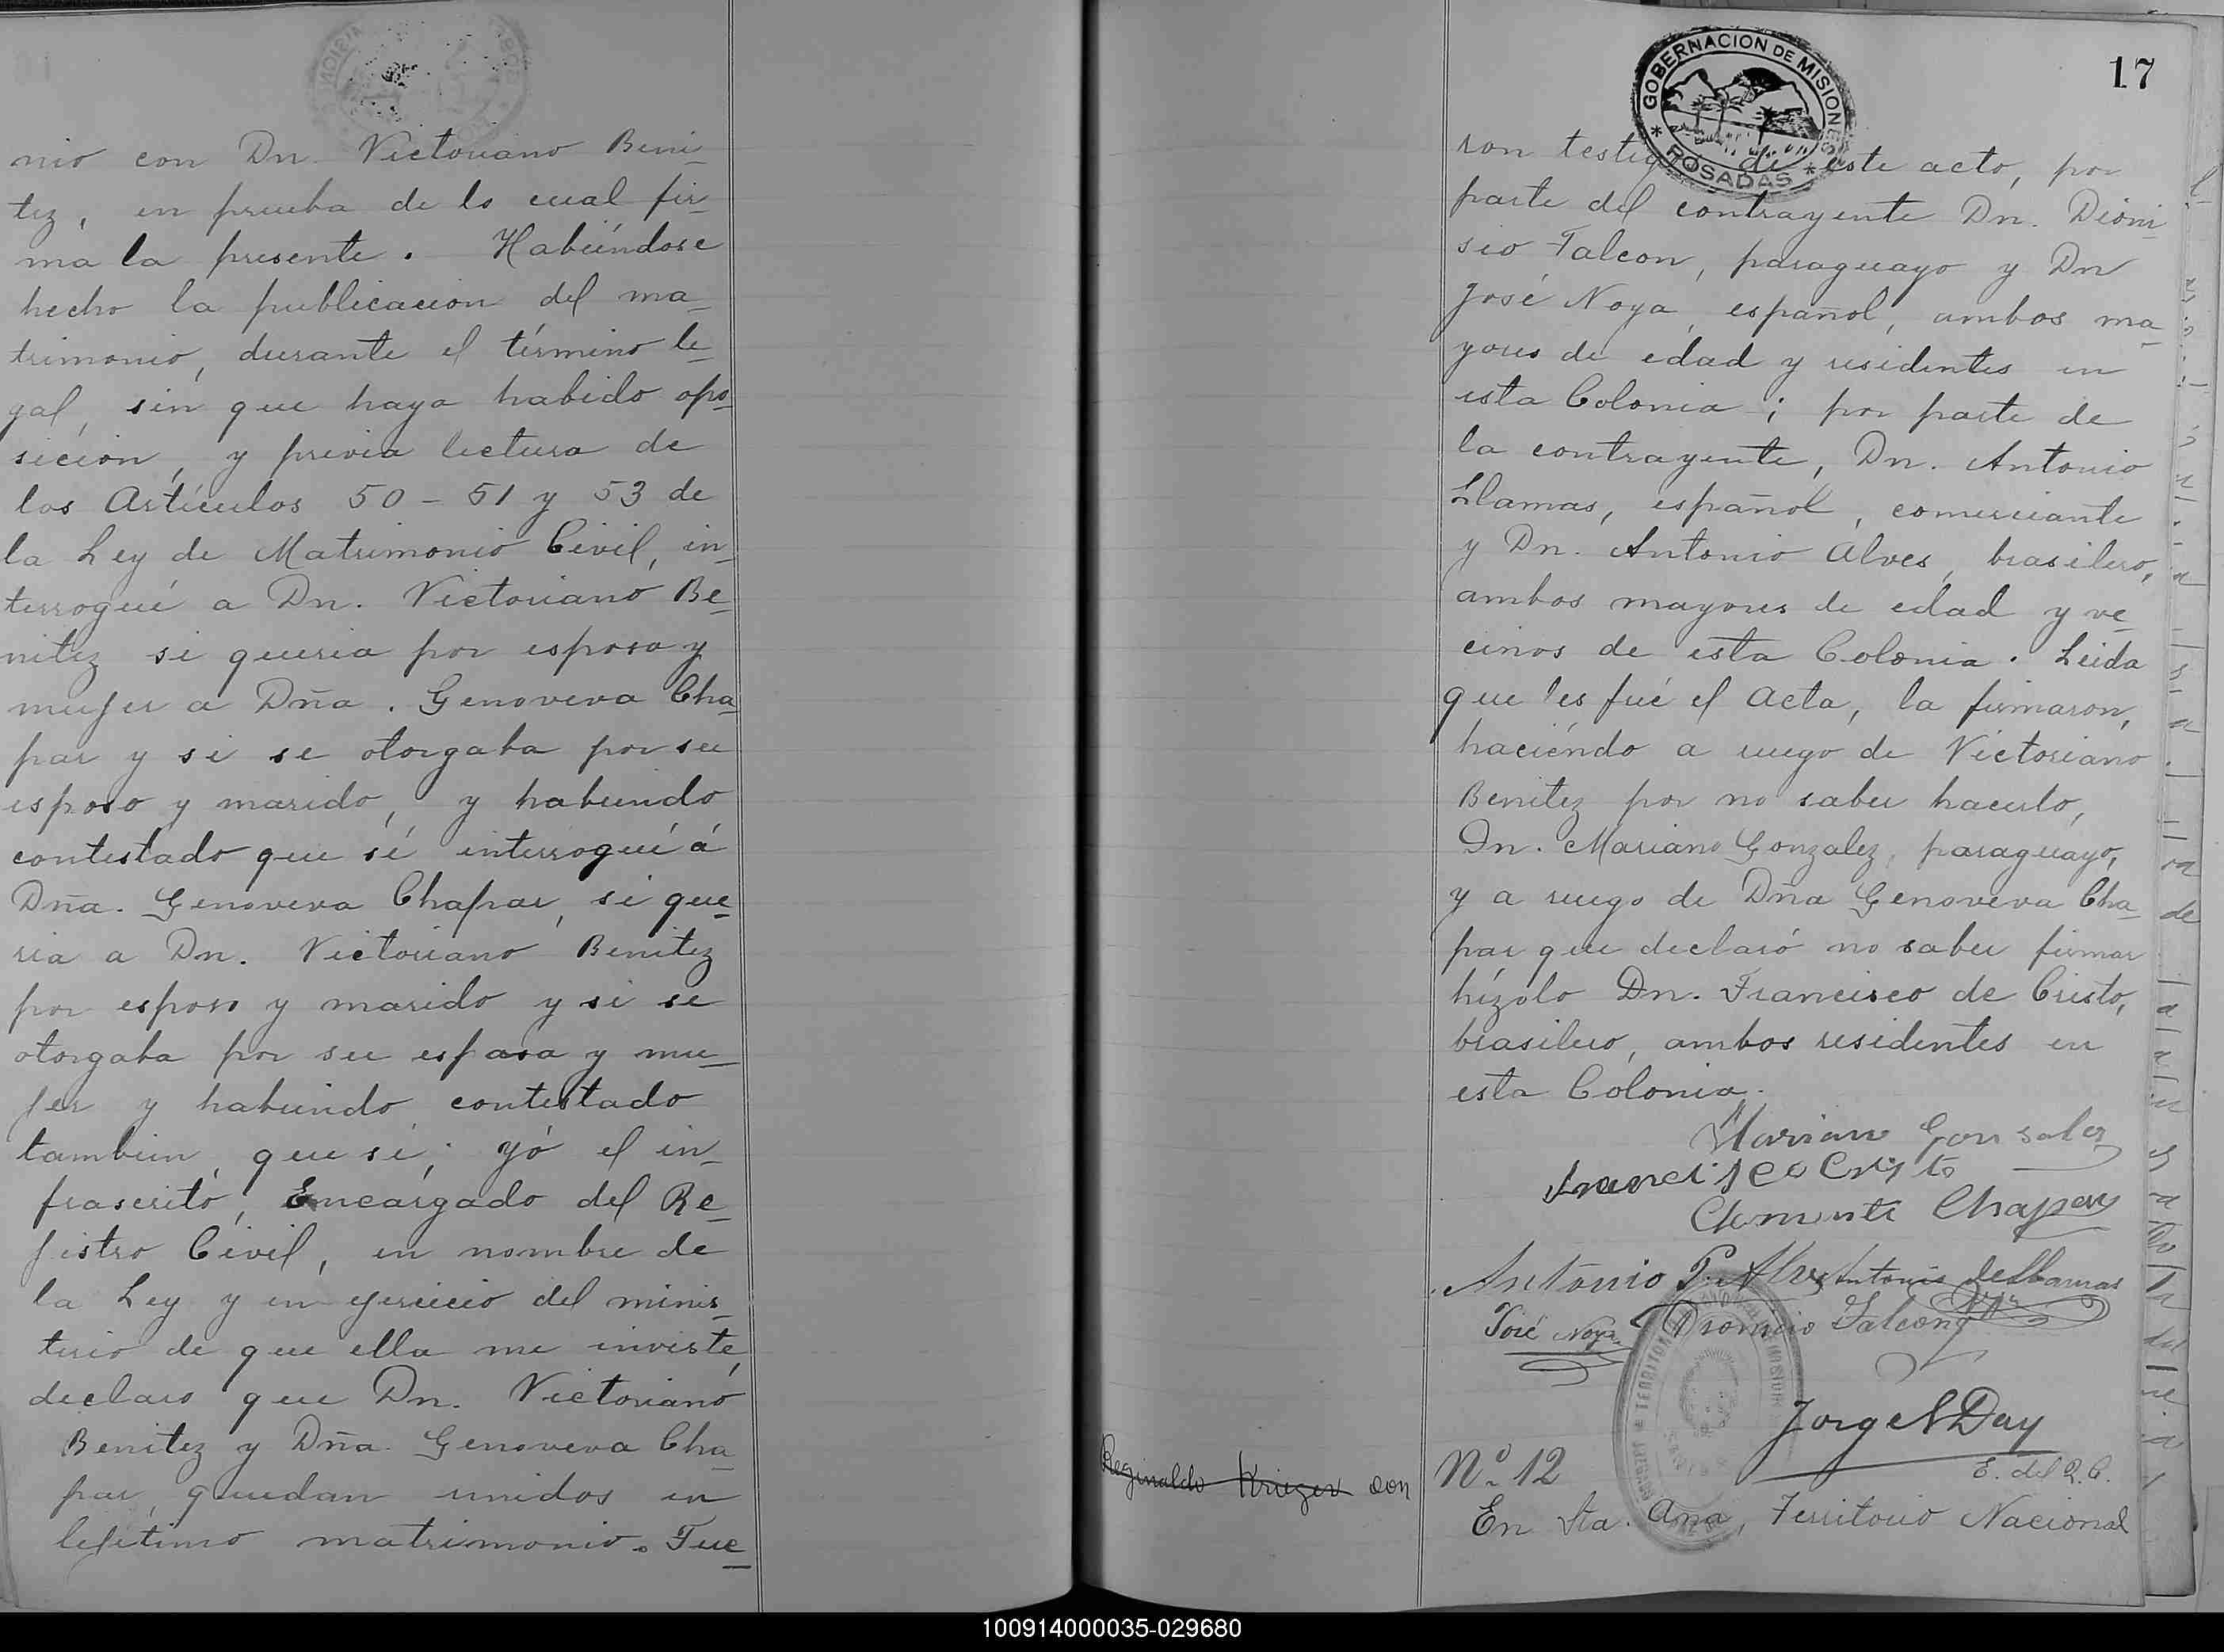 nio con Dn. Victoriano Beni-
tez, en prueba de lo cual fir-
ma la presente. Habiéndose
hecho la publicacion del ma-
trimonio, durante el término le-
gal, sin que haya habido opo-
sicion, y previa lectura de
los Artículos 50 - 51 y 53 de
la Ley de Matrimonio Civil, in-
terrogué a Dn. Victoriano Be-
nitez si queria por esposa y
mujer a Dña. Genoveva Cha-
par y si se otorgaba por su
esposo y marido, y habiendo
contestado que sí interrogué á
Dña. Genoveva Chapar, si que-
ria a Dn. Victoriano Benitez
por esposo y marido y si se
otorgaba por su esposa y mu-
jer y habiendo contestado
tambien, que sí; yó el in-
frascrito, Encargado del Re-
jistro Civil, en nombre de
la Ley y en ejercicio del minis-
terio de que ella me inviste,
declaro que Dn. Victoriano
Benitez y Dña. Genoveva Cha-
par, quedan unidos en
lejítimo matrimonio. Fue-
GOBERNACION DE MISIONES
* POSADAS *
17
ron testigos de este acto, por
parte del contrayente Dn. Dioni-
sio Falcon, paraguayo y Dn
José Noya, español, ambos ma-
yores de edad y residentes en
esta Colonia; por parte de
la contrayente, Dn. Antonio
Llamas, español, comerciante
y Dn. Antonio Alves, brasilero,
ambos mayores de edad y ve-
cinos de esta Colonia. Leida
que les fué el acta, la firmaron,
haciéndo a ruego de Victoriano
Benitez por no saber hacerlo,
Dn. Mariano Gonzalez, paraguayo,
y a ruego de Dña Genoveva Cha-
par que declaró no saber firmar
hízolo Dn. Francisco de Cristo,
brasilero, ambos residentes en
esta Colonia.
Mariano Gonsalez
Francisco Cristo
Clemente Chapar
Antonio P. Alves Antonio deLlamas
José Noya Dionicio Falcon
Jorge N Day
E. del R. C.
Reginaldo Krieger con
Nº 12
En Sta. Ana, Territorio Nacional
100914000035-029680